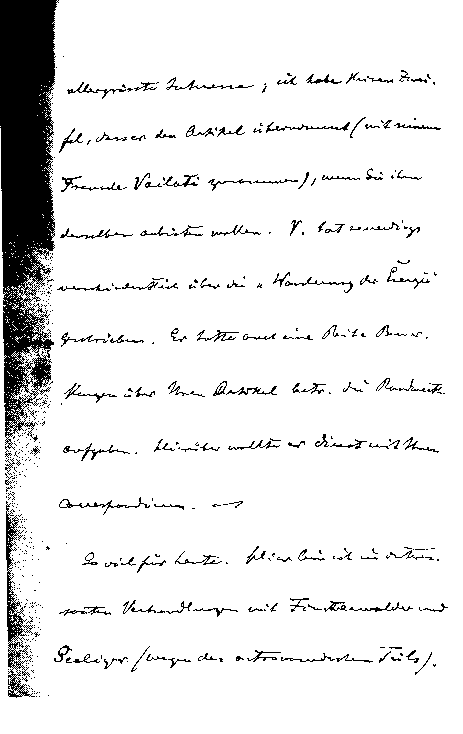 allergrösste Interesse; ich habe keinen Zwei-
fel, dass er den Artikel übernimmt (mit seinem
Freunde Vailati zusammen), wenn Sie ihm
denselben anbieten wollen. V. hat neuerdings
verschiedentlich über die "Wanderung der Energie"
geschrieben. Er hatte auch eine Reihe Bemer-
kungen über Ihren Artikel betr. die Randwerth-
aufgaben. Hierüber wollte er direct mit Ihnen
correspondieren.
So viel für heute. Hier bin ich in
Verhandlungen mit Finsterwalder und
Seeliger (wegen des astronomischen Teils).